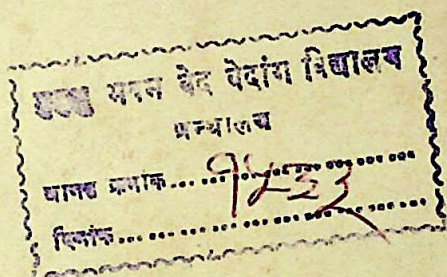 मुमुक्षु भवन वेद वेदांग विद्यालय
ग्रन्थालय
आगत क्रमांक... १५३३
दिनांक...